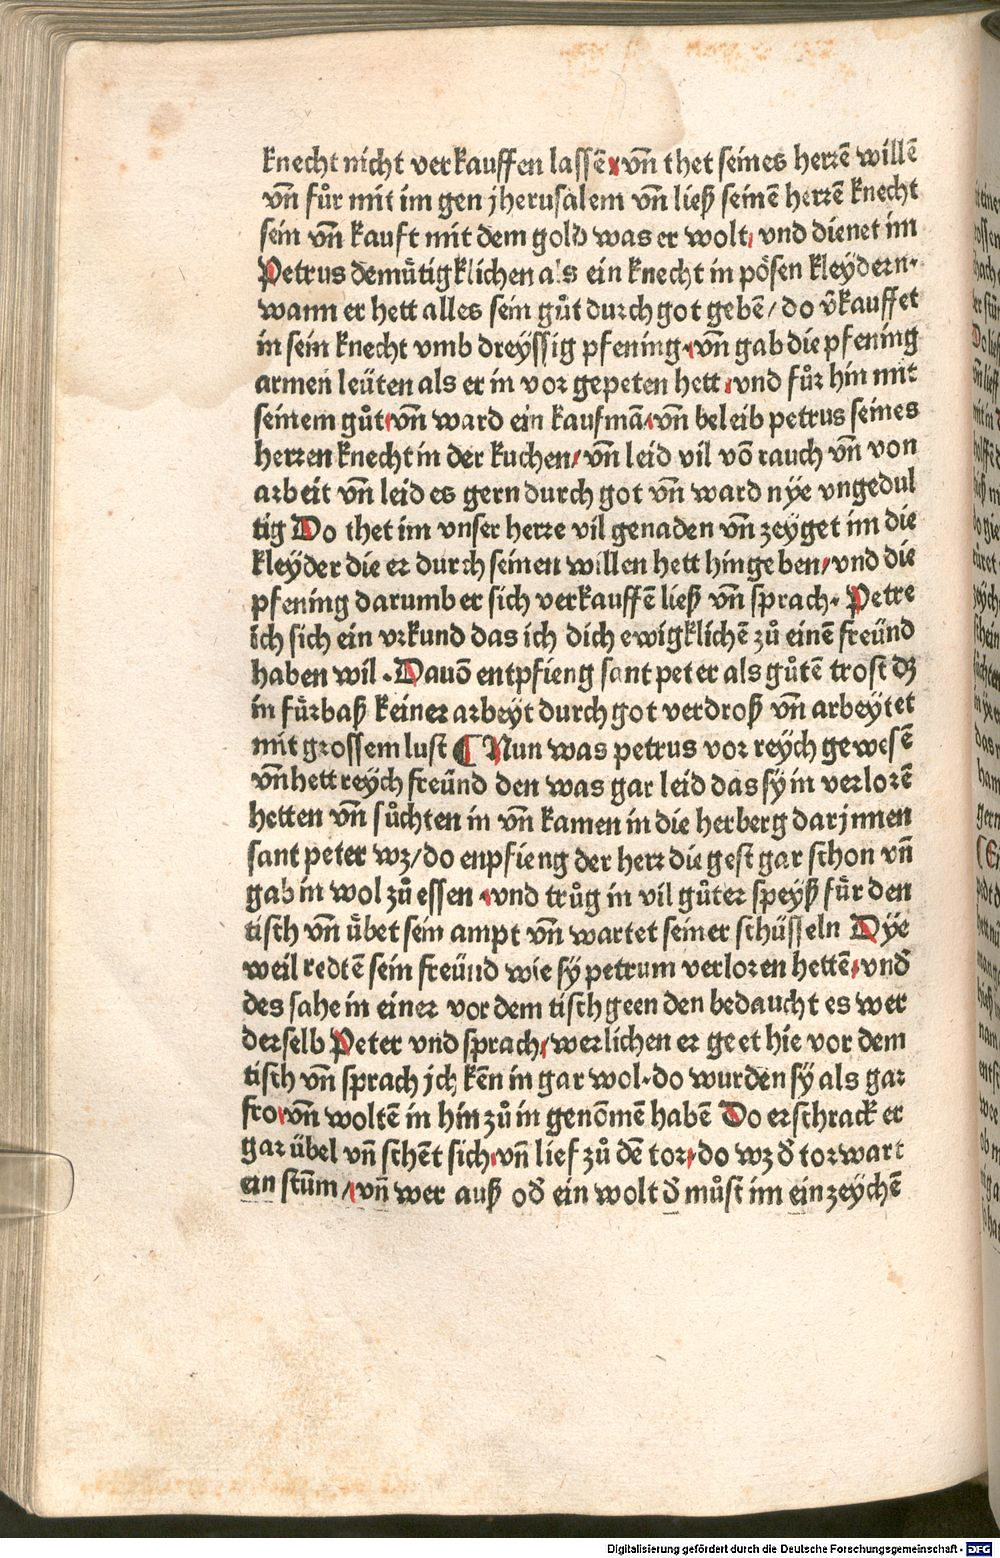 knecht nicht verkauffen lassē vn̄ thet seines herzē willē
vn̄ fůr mit im gen jherusalem vn̄ ließ seinē herzē knecht
sein vn̄ kauft mit dem gold was er wolt, vnd dienet im
Petrus demůtigklichen als ein knecht in pösen kleydern.
wann er hett alles sein gůt durch got gebē / do v̄kauffet
in sein knecht vmb dreyssig pfening. vn̄ gab die pfening
armen leüten als er in vor gepeten hett. vnd fůr hin mit
seinem gůt. vn̄ ward ein kaufmā. vn̄ beleib petrus seines
herzen knecht in der kuchen / vn̄ leid vil vō rauch vn̄ von
arbeit vn̄ leid es gern durch got vn̄ ward nÿe vngedul
tig Do thet im vnser herze vil genaden vn̄ zeyget im die
kleyder die er durch seinen willen hett hingeben / vnd die
pfening darumb er sich verkauffē ließ vn̄ sprach. Petre
ich sich ein vrkund das ich dich ewigklichē zů einē freünd
haben wil. Dauō entpfieng sant peter als gůtē trost dz
in fürbaß keiner arbeyt durch got verdroß vn̄ arbeytet
mit grossem lust ¶ Nun was petrus vor reych gewesē
vn̄ hett reych freünd den was gar leid das sy in verlorē
hetten vn̄ sůchten in vn̄ kamen in die herberg darjnnen
sant peter wz / do enpfieng der herr die gest gar schon vn̄
gab in wol zů essen. vnd trůg in vil gůter speyß für den
tisch vn̄ übet sein ampt vn̄ wartet seiner schüsseln Dÿe
weil redtē sein freünd wie sy petrum verloren hettē, vnd̄
des sahe in einer vor dem tisch geen den bedaucht es wer
derselb Peter vnd sprach / werlichen er geet hie vor dem
tisch vn̄ sprach jch kēn in gar wol. do wurden sy als gar
fro vn̄ woltē in hin zů in genōmē habē Do erschrack er
gar übel vn̄ schēt sich. vn̄ lief zů dē tor. do wz d̄ torwart
ein stūm / vn̄ wer auß od̄ ein wolt d̄ můst im ein zeychē
Digitalisierung gefördert durch die Deutsche Forschungsgemeinschaft - DFG